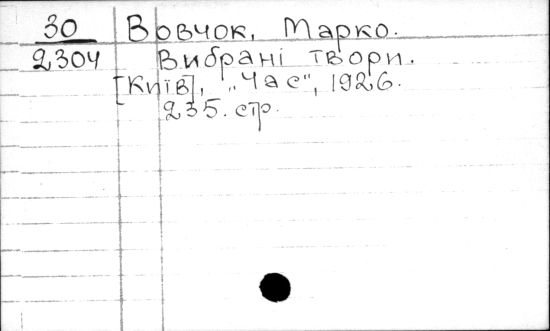 30 Вовчок, Марко.
2304 Вибрані твори.
[Київ], „Час“, 1926.
235. стр.